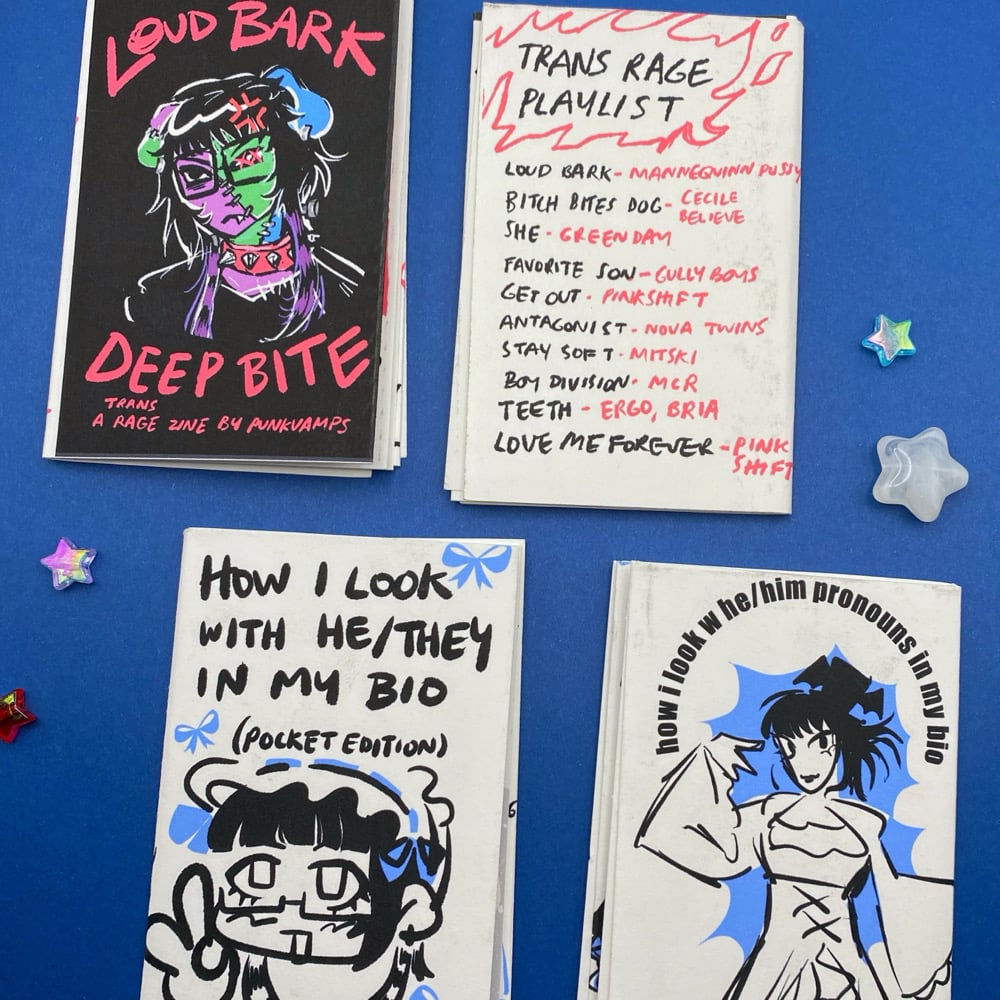 LOUD BARK
DEEP BITE
TRANS
A RAGE ZINE BY PUNKVAMPS
TRANS RAGE
PLAYLIST
LOUD BARK - MANNEQUINN PUSSY
BITCH BITES DOG - CECILE
BELIEVE
SHE - GREEN DAY
FAVORITE SON - GULLY BOYS
GET OUT - PINKSHIFT
ANTAGONIST - NOVA TWINS
STAY SOFT - MITSKI
BOY DIVISION - MCR
TEETH - ERGO, BRIA
LOVE ME FOREVER - PINK
SHIFT
HOW I LOOK
WITH HE/THEY
IN MY BIO
(POCKET EDITION)
how i look w he/him pronouns in my bio